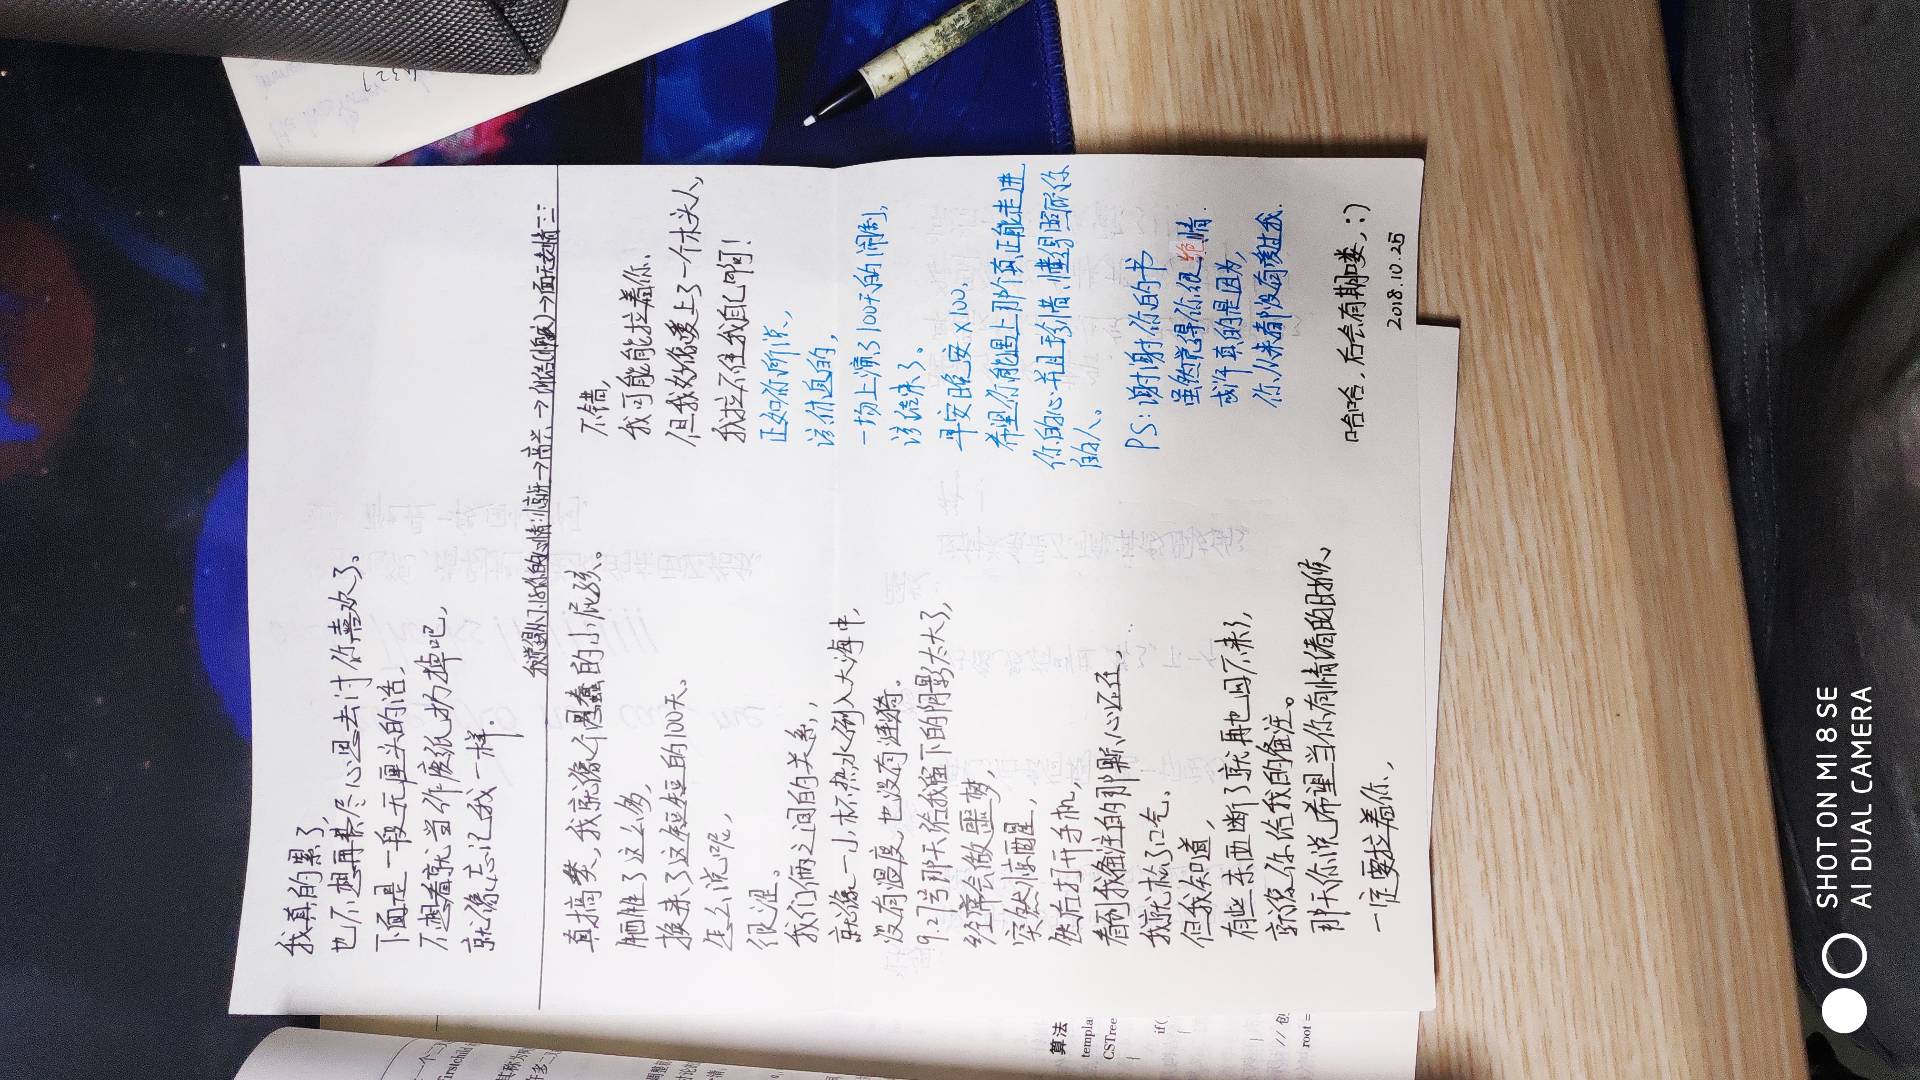 我真的累了,
也不想再费尽心思去讨你喜欢了。
下面是一段无厘头的话,
不想看就当作废纸扔掉吧,
就像忘记我一样.
我觉得从7.15你的心情:惊讶→高兴→纠结(惆怅)→面无表情
真搞笑,我就像个愚蠢的小屁孩。
牺牲了这么多,
换来了这短短的100天。
怎么说呢,
很涩。
我们俩之间的关系,,
就像一小杯热水倒入大海中,
没有温度,也没有涟漪。
9.27号那天给我留下的阴影太大了,
经常会做噩梦,
突然惊醒,
然后打开手机,
看到我备注的那颗心还在,
我就松了口气。
但我知道,
有些东西断了就再也回不来了,
就像你给我的备注。
那天你说希望当你有情绪的时候,
一定要拉着你,
不错,
我可能能拉着你,
但我好像爱上了一个木头人,
我拉不住我自己啊!
正如你所说,
该休息的,
一场上演了100天的闹剧,
该结束了。
早安晚安×100,
希望你能遇上那个真正能走进
你的心并且珍惜、懂得照顾你
的人。
PS:谢谢你的书
虽然觉得你很绝情.
或许真的是因为,
你从来都没有爱过我.
哈哈,后会有期喽,:)
2018.10.25
算法
templa
CSTree
{
if(
{
}
// 创
root =
firstchild
其称为
许多二
SHOT ON MI 8 SE
AI DUAL CAMERA